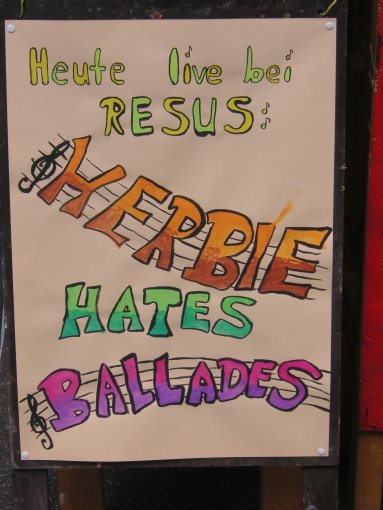 Heute live bei
RESUS:
HERBIE
HATES
BALLADES